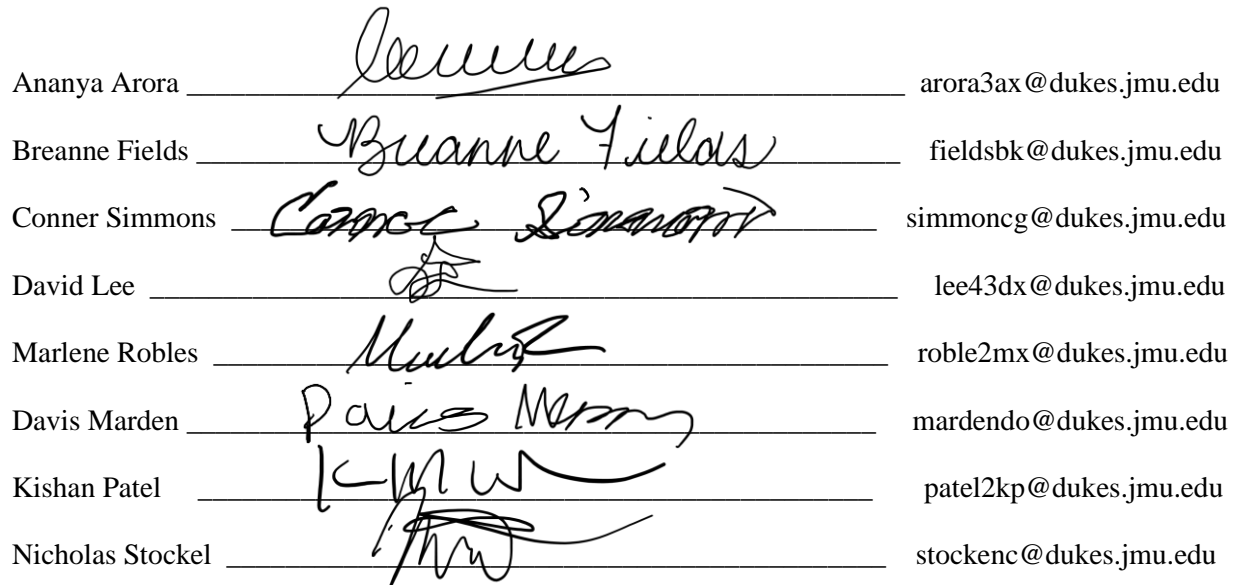 Ananya Arora arora3ax@dukes.jmu.edu
Breanne Fields Breanne Fields fieldsbk@dukes.jmu.edu
Conner Simmons Conner Simmons simmoncg@dukes.jmu.edu
David Lee lee43dx@dukes.jmu.edu
Marlene Robles roble2mx@dukes.jmu.edu
Davis Marden mardendo@dukes.jmu.edu
Kishan Patel patel2kp@dukes.jmu.edu
Nicholas Stockel stockenc@dukes.jmu.edu